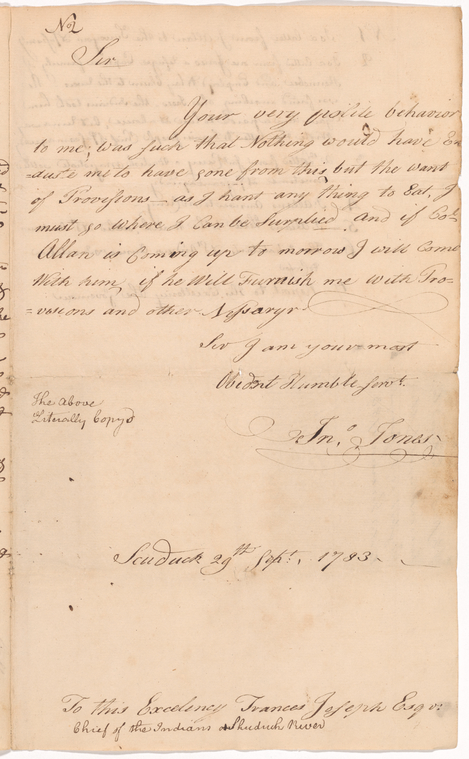 No 2
Sir
Your very polite behavior
to me, was such that Nothing would have En=
=duste me to have gone from this but the want
of Provissons— as I hant any thing to Eat, I
must go where I Can be Surplied and if Col.
Allan is Coming up to morrow I will Come
With him if he Will Furnish me With Pro=
=vasions and other Nessarys
Sir I am your most
Obident Humble Servt.
The Above
Literally Copy'd
Jno. Jones
Scuduck 29th Sept. 1783.
To this Excelency Frances Joseph Esqr.
Chief of the Indians Skuduck River